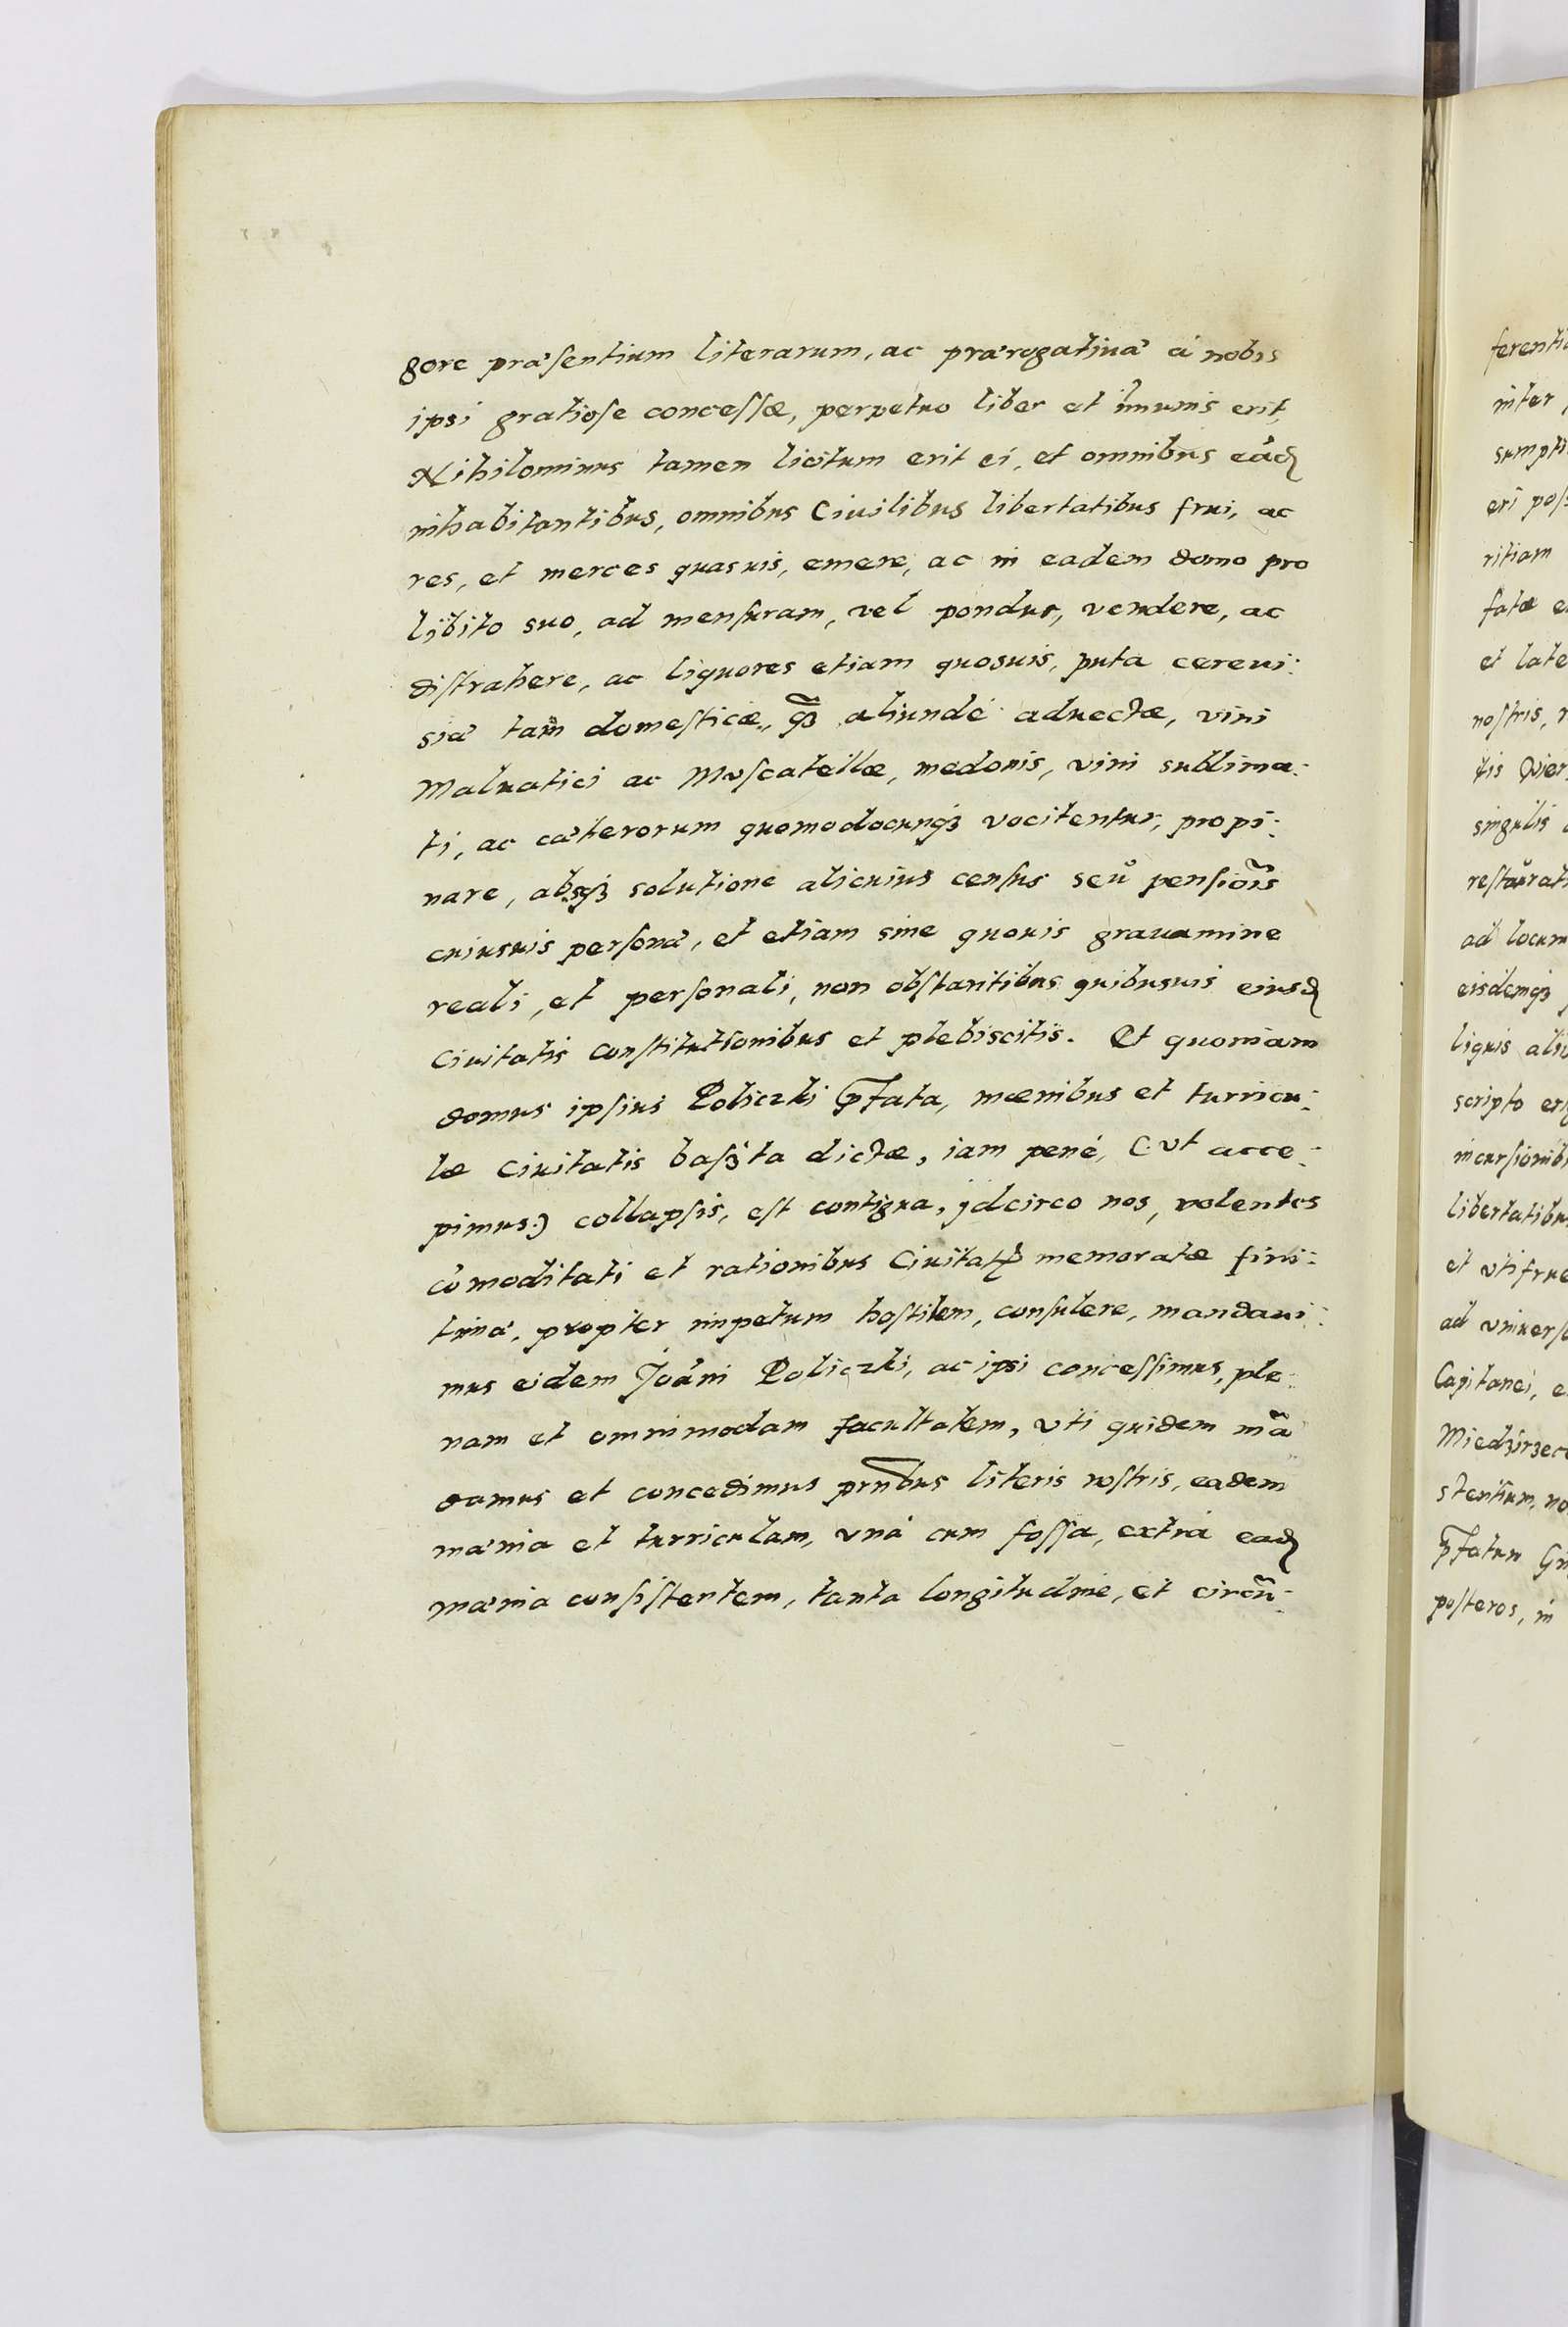 gore præsentium literarum, ac prærogatiuæ à nobis
ipsi gratiose concessæ, perpetuo liber et im̃unis erit,
Nihilominus tamen licitum erit ei, et omnibus eãd
inhabitantibus, omnibus Ciuilibus libertatibus frui, ac
res, et merces quasuis, emere, ac in eadem domo pro
libito suo, ad mensuram, vel pondus, vendere, ac
distrahere, ac liquores etiam quosuis, puta cereui:
siæ tam domesticæ, q̃ꝫ aliundè aduectæ, vini
Maluatici ac Muscatellæ, medonis, vini sublima:
ti, ac cæterorum quomodocunqꝫ vocitentur, propi:
nare, absqꝫ solutione alicuius census seu pensiõis
cuiusuis personæ, et etiam sine quouis grauamine
reali, et personali, non obstantibus quibusuis eiusd
Ciuitatis constitutionibus et plebiscitis. Et quoniam
domus ipsius Policzki p̃fata, mœnibus et turricu:
læ Ciuitatis baszta dictæ, iam penè, (vt acce:
pimus:) collapsis, est contigua, jdcirco nos, volentes
cõmoditati et rationibus Ciuitatꝭ memoratæ fini:
timæ, propter impetum hostilem, consulere, mandaui:
mus eidem Joãni Policzki, ac ipsi concessimus, ple:
nam et omnimodam facultatem, vti quidem mã
damus et concedimus prñtibus literis nostris, eadem
mænia et turriculam, vnà cum fossa, extrà ead
mænia consistentem, tanta longitudine, et circũ:
ferenti
inter
sumpti
eri pos
ritiam
fatæ e
et late
nostris,
tis
singulis
restaurati
ad locum
eisdemqꝫ
liquis aliu
scripto eri
incursionib
libertatibu
et vti frue
ad vniuers
Capitanei, e
Miedzirzec
stentium, no
p̃fatum
posteros, in